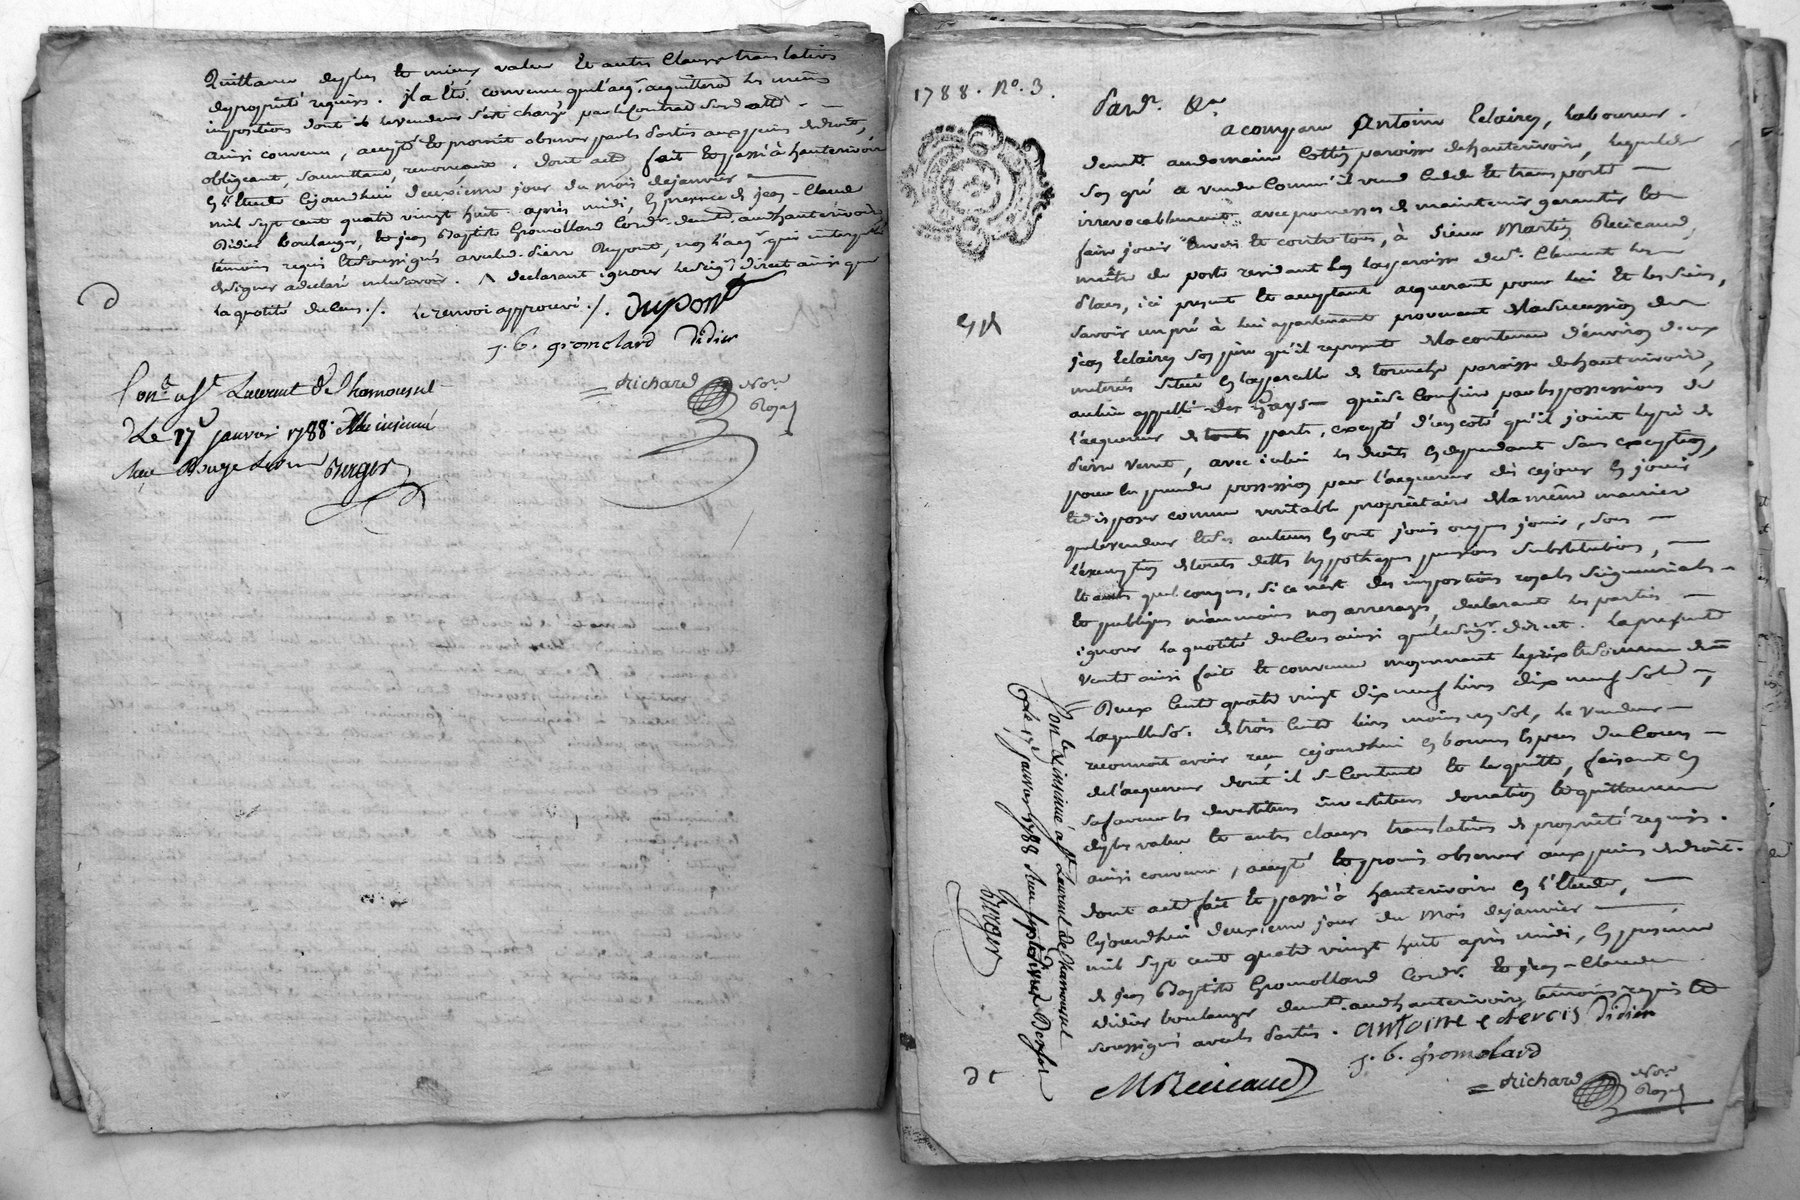 Quittance deplus et mieux value et autres clauses translatives
de propriété requises. il a été convenu que l'acqr. acquittera les mêmes
impositions dont le vendeur s'est chargé par le contrat
ainsi convenu, accepté et promit observer par les parties aux peines de droit,
obligeant, soumettant, renonceant. dont acte fait et passé à hauterivoire
En l'Etude Cejourdhui deuxieme jour du mois dejanvier
mil sept cent quatre vingt huit après midi, En presence de jean-Claude
Didier boulanger, et jean Baptiste Gromollard Cordr. demt. audt hauterivoire,
témoins requis et soussignés avec led. Sierr Dupont, non l'acqr. qui interpellé
designer a declaré ne le savoir. declarant ignorer le seigr. direct ainsi que
la quotité du Cens ./. Le renvoi approuvé ./. dupont
j. b. gromelard didier
richard Nore.
Royal
Con.lé à St. Laurent de Chamousset
Le 17e janvier 1788
Berger
1788. No. 3.
Pardt. &a
a comparu Antoine Eclaircy, laboureur
demt. au domaine Collin paroisse de hauterivoire, lequel de
son gré a vendu Comme il vend Cede et transporte
irrevocablement avec promesses de maintenir garantir et
faire jouir Envers et contre tous, à Sieur Martin Recicaud,
maître de poste residant En la paroisse de St. Clement les
places, ici present et acceptant acquerant pour lui et les siens,
Savoir un pré à lui appartenant provenant de la succession de
jean Eclaircy son père qu'il represente de la contenue d'environ deux
meterés situé En la parcelle de paroisse de hauterivoire,
au lieu appellé des Gays que se Confine par les possessions de
l'acquereur de toutes parts, excepté d'un coté qu'il joint le pré de
pierre venet, avec icelui les droits En dependant sans exception,
pour En prendre possession par l'acquereur dès cejour En jouir
et disposer comme veritable propriétaire de la même maniere
que le vendeur et ses auteurs En ont joui ou pu jouir, sous
l'exemption de toutes dettes hypotheques pensions substitutions,
et autres quelconques, si ce n'est des impositions royales seigneuriales
et publiques néanmoins non arreragés, declarant les parties
ignorer la quotité du Cens ainsi que le seigr. direct. La presente
vente ainsi faite et convenue moyennant le prix et somme de
Deux Cents quatre vingt dix neuf livres dix neuf sols
laquelle so. de trois Cents livres moins un sol, le vendeur
reconnoit avoir reçu cejourdhui En bonnes Especes du Cours
de l'acquereur dont il se Contente et le quitte, faisant En
sa faveur les devestitures investitures donation et quittance
deplus value et autres clauses translatives de propriété requises.
ainsi convenu, accepté et promis observer aux peines de droit.
dont acte fait et passé à hauterivoire En l'Etude,
Cejourdhui deuxieme jour du mois dejanvier
mil sept cent quatre vingt huit après midi, En presence
de jean Baptiste Gromollard Cordr. et jean-Claude
Didier boulanger demt. audt hauterivoire témoins requis et
soussignés avec les parties. antoine eclercis didier
j. b. gromelard
MRecicaud
richard Nore.
Royal
Con.lé et insinué à St. Laurent de Chamousset
Le 17e janvier 1788
Berger